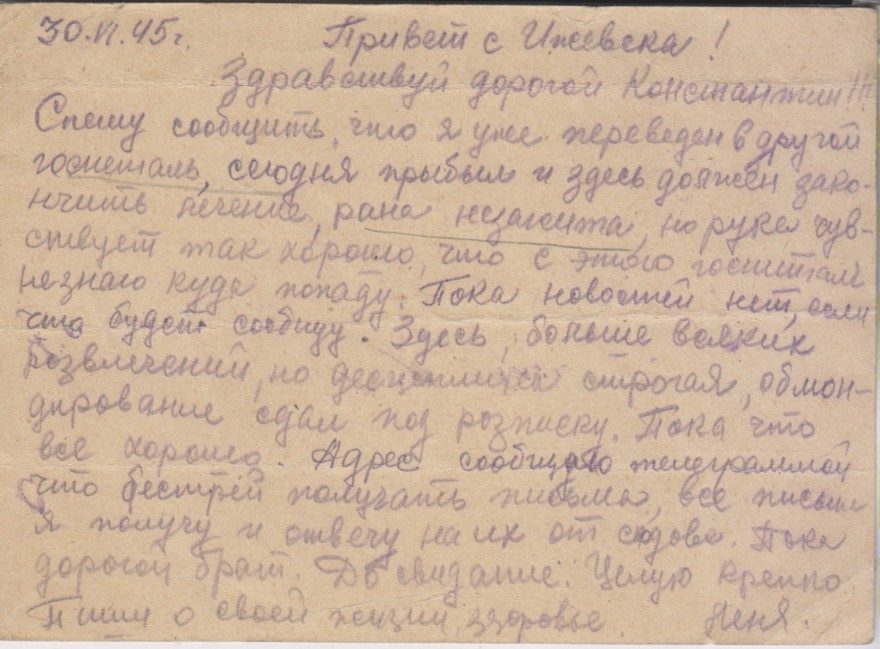 30.VI.45г. Привет с Ижевска!
Здравствуй дорогой Константин!!!
Спешу сообщить, что я уже переведен в другой
госпеталь, сегодня прибыл и здесь должен зако-
нчить лечение, рана незажита, но рука чув-
ствует так хорошо, что с этого госпиталь
незнаю куда попаду. Пока новостей нет, если
что будет сообщу. Здесь, больше всяких
розвлечений, но строгая, обмон-
дирование сдал под розписку. Пока что
все хорошо. Адрес сообщую телеграммой
что бестрей получать письма, все письма
я получу и отвечу на их от сюдова. Пока
дорогой брат. До свидание. Целую крепко
Пиши о своей жизни, здоровье. Неня.